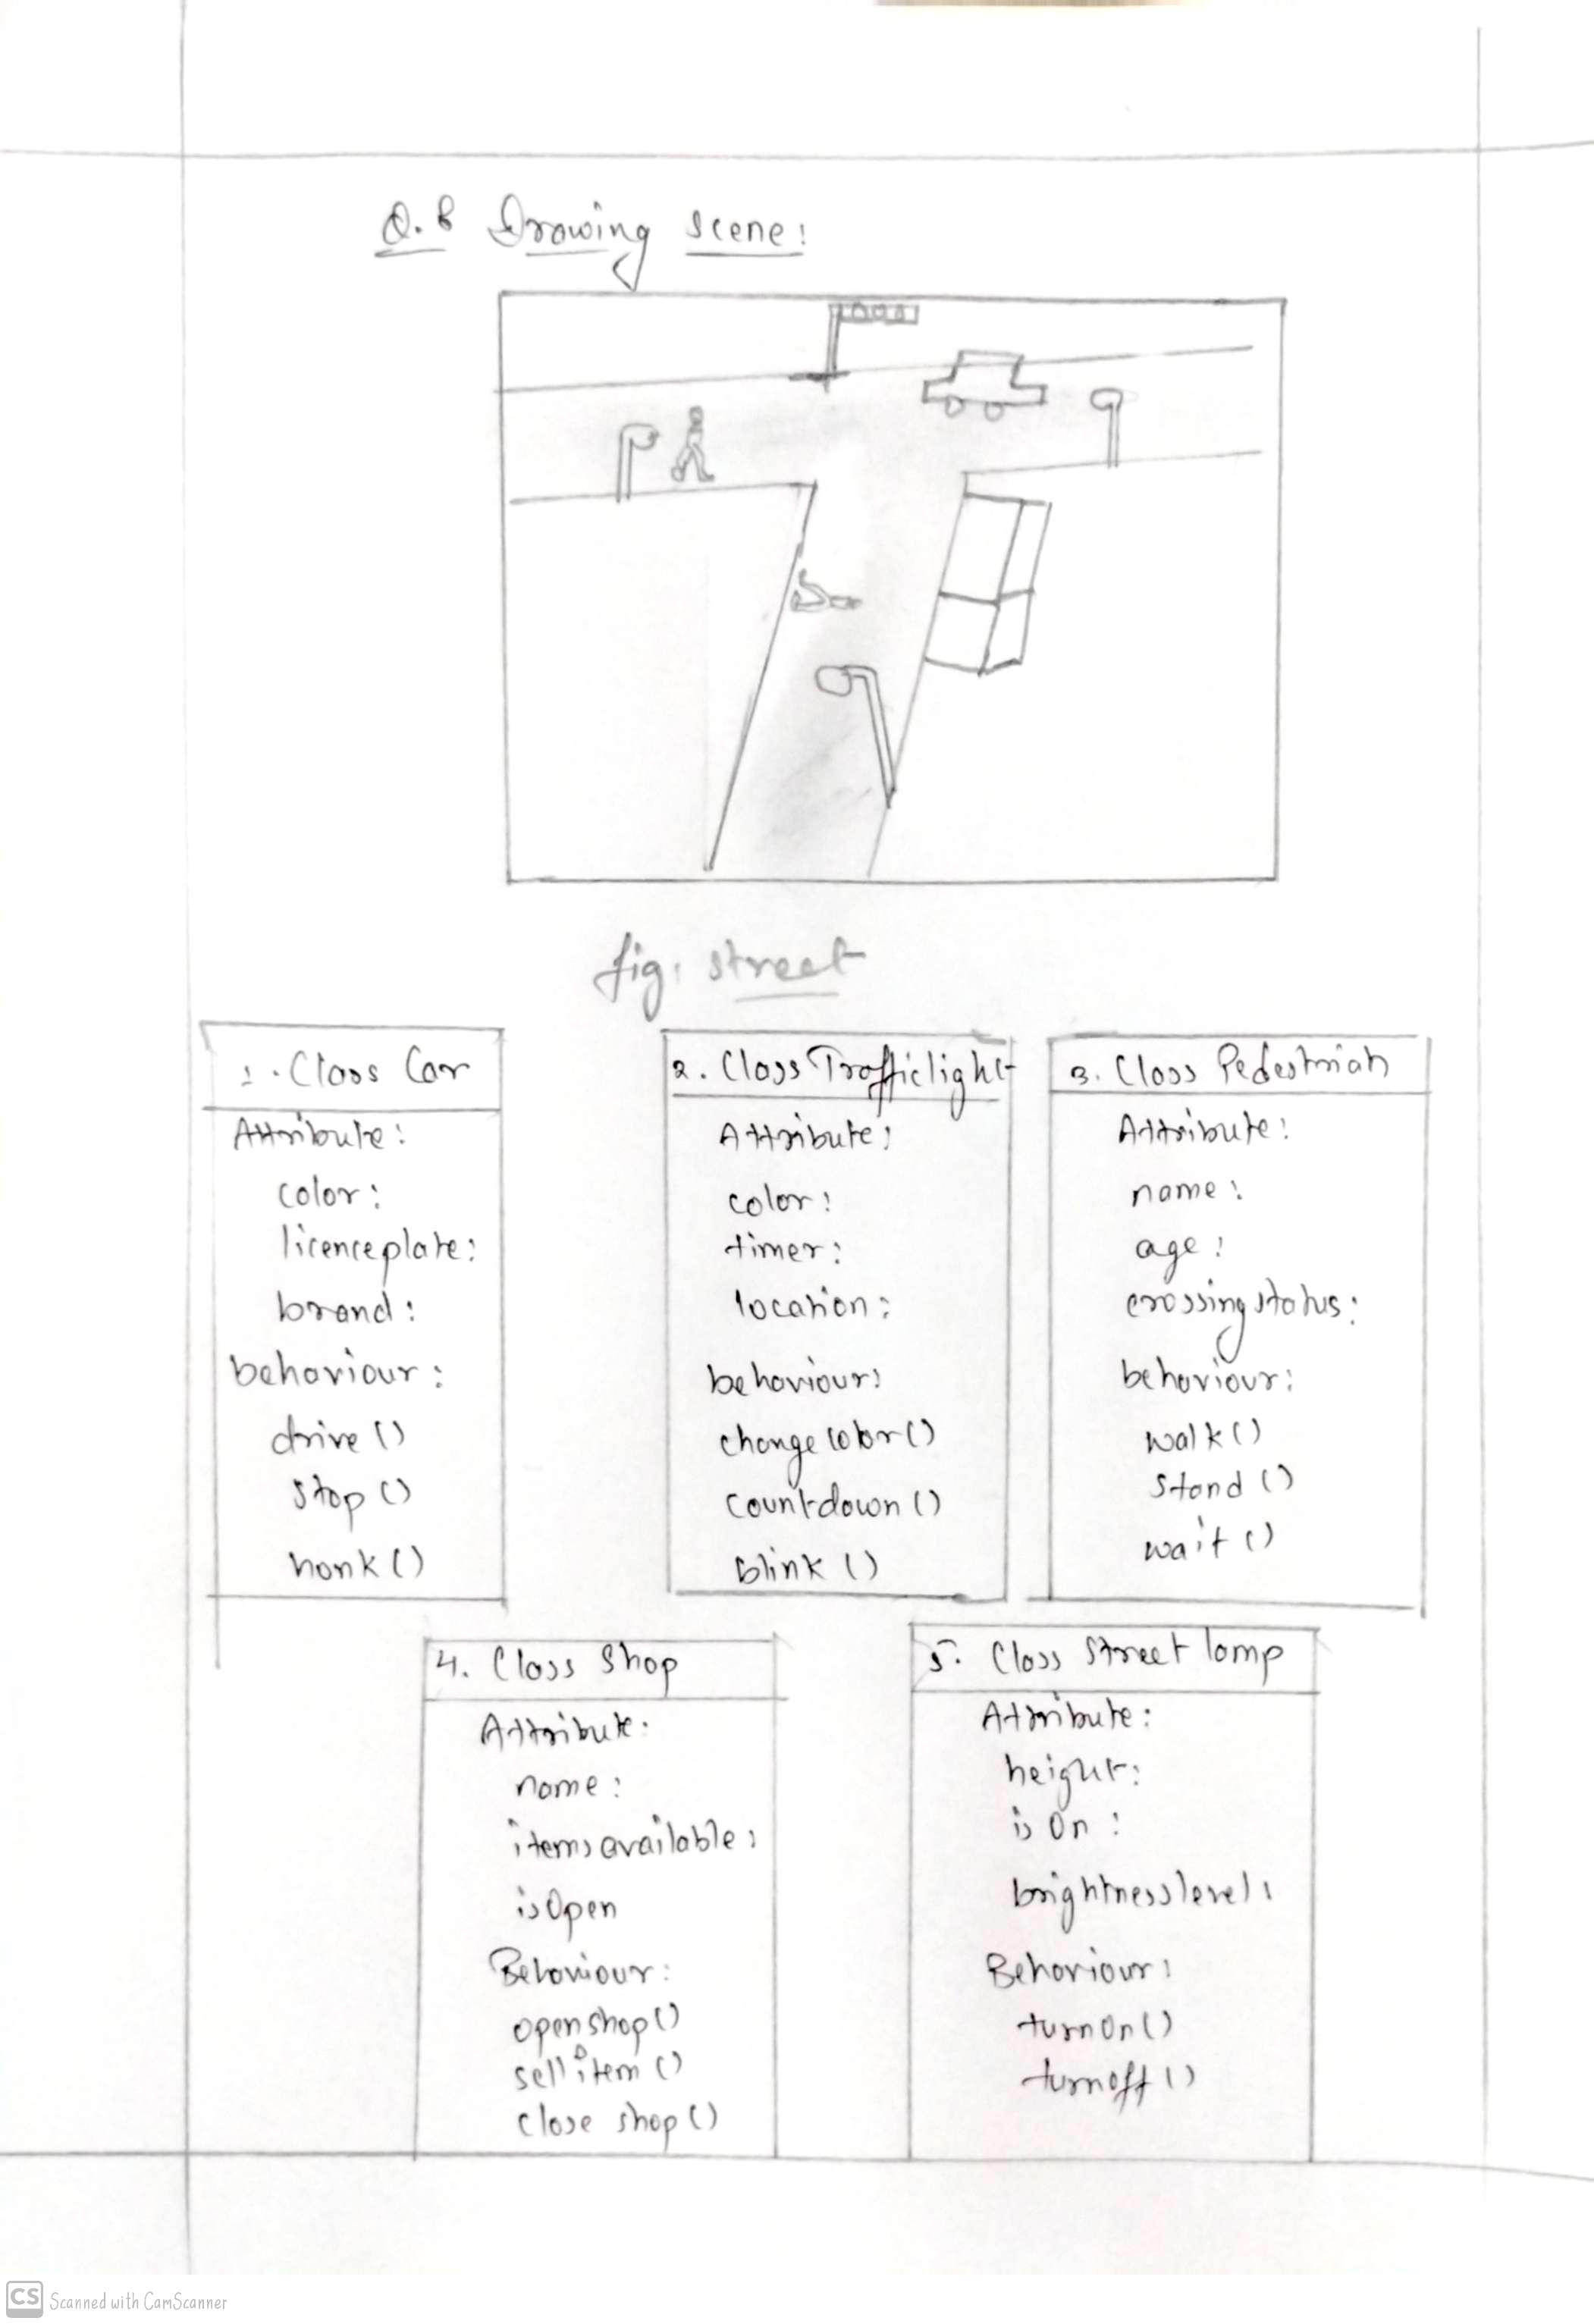 Q.B Drawing scene:
fig. street
1. Class Car
Attribute:
color:
licenceplate:
brand:
behaviour:
drive()
stop()
honk()
2. Class Trafficlight
Attribute:
color:
timer:
location:
behaviour:
changecolor()
countdown()
blink()
3. Class Pedestrian
Attribute:
name:
age:
crossingstatus:
behaviour:
walk()
stand()
wait()
4. Class Shop
Attribute:
name:
itemsavailable:
isOpen
Behaviour:
openshop()
sellitem()
close shop()
5. Class Street lamp
Attribute:
height:
isOn:
brightnesslevel:
Behaviour:
turnOn()
turnoff()
CS Scanned with CamScanner